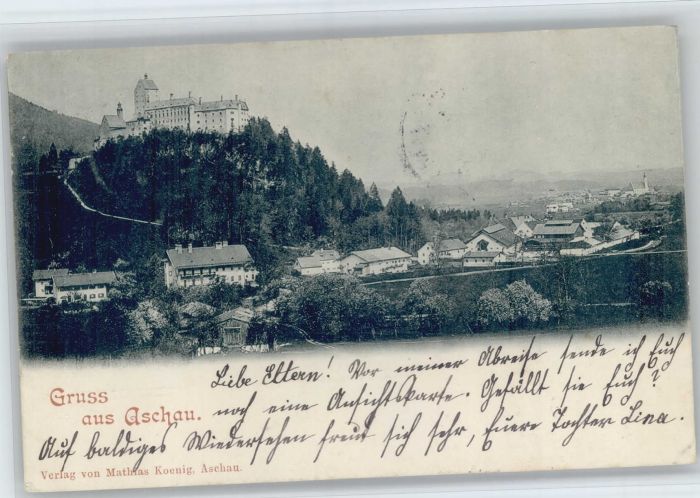 Liebe Eltern! Vor meiner Abreise sende ich Euch
Gruss
aus Aschau.
noch eine Ansichtskarte. Gefällt sie Euch?
Auf baldiges Wiedersehen freut sich sehr, Euere Tochter Lina.
Verlag von Mathias Koenig, Aschau.